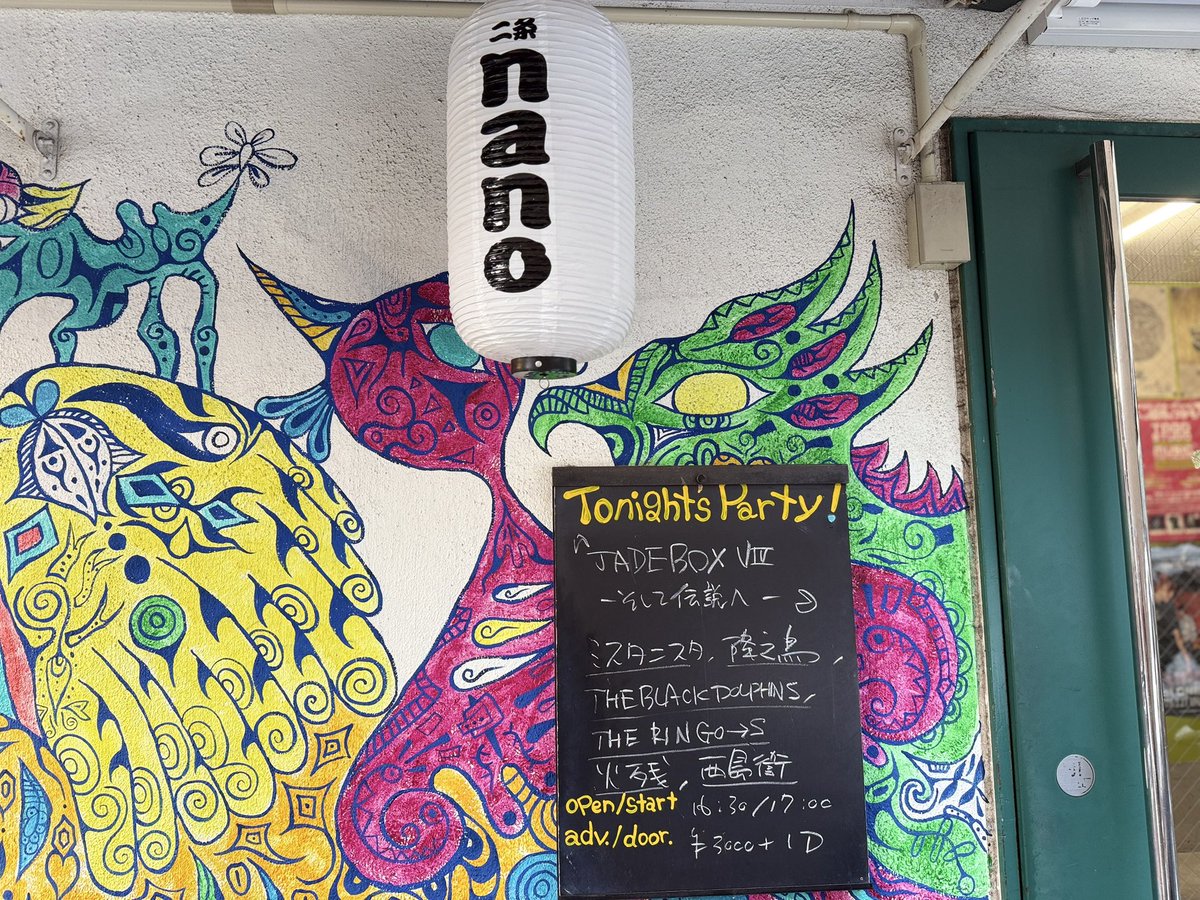 二条
nano
Tonight's Party!
"JADEBOX VIII
-そして伝説へ-"
ミスタニスタ, 隆之鳥,
THE BLACK DOLPHINS,
THE RINGO→S
火残, 西島衛
open/start 16:30/17:00
adv./door. ¥3000+1D